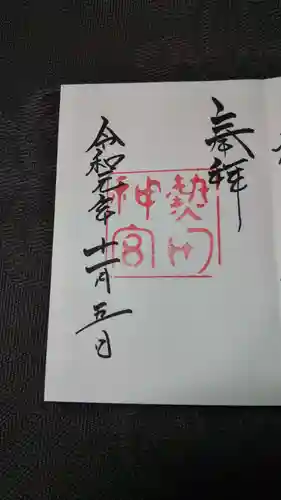 奉拝
熱田
神宮
令和元年十一月五日